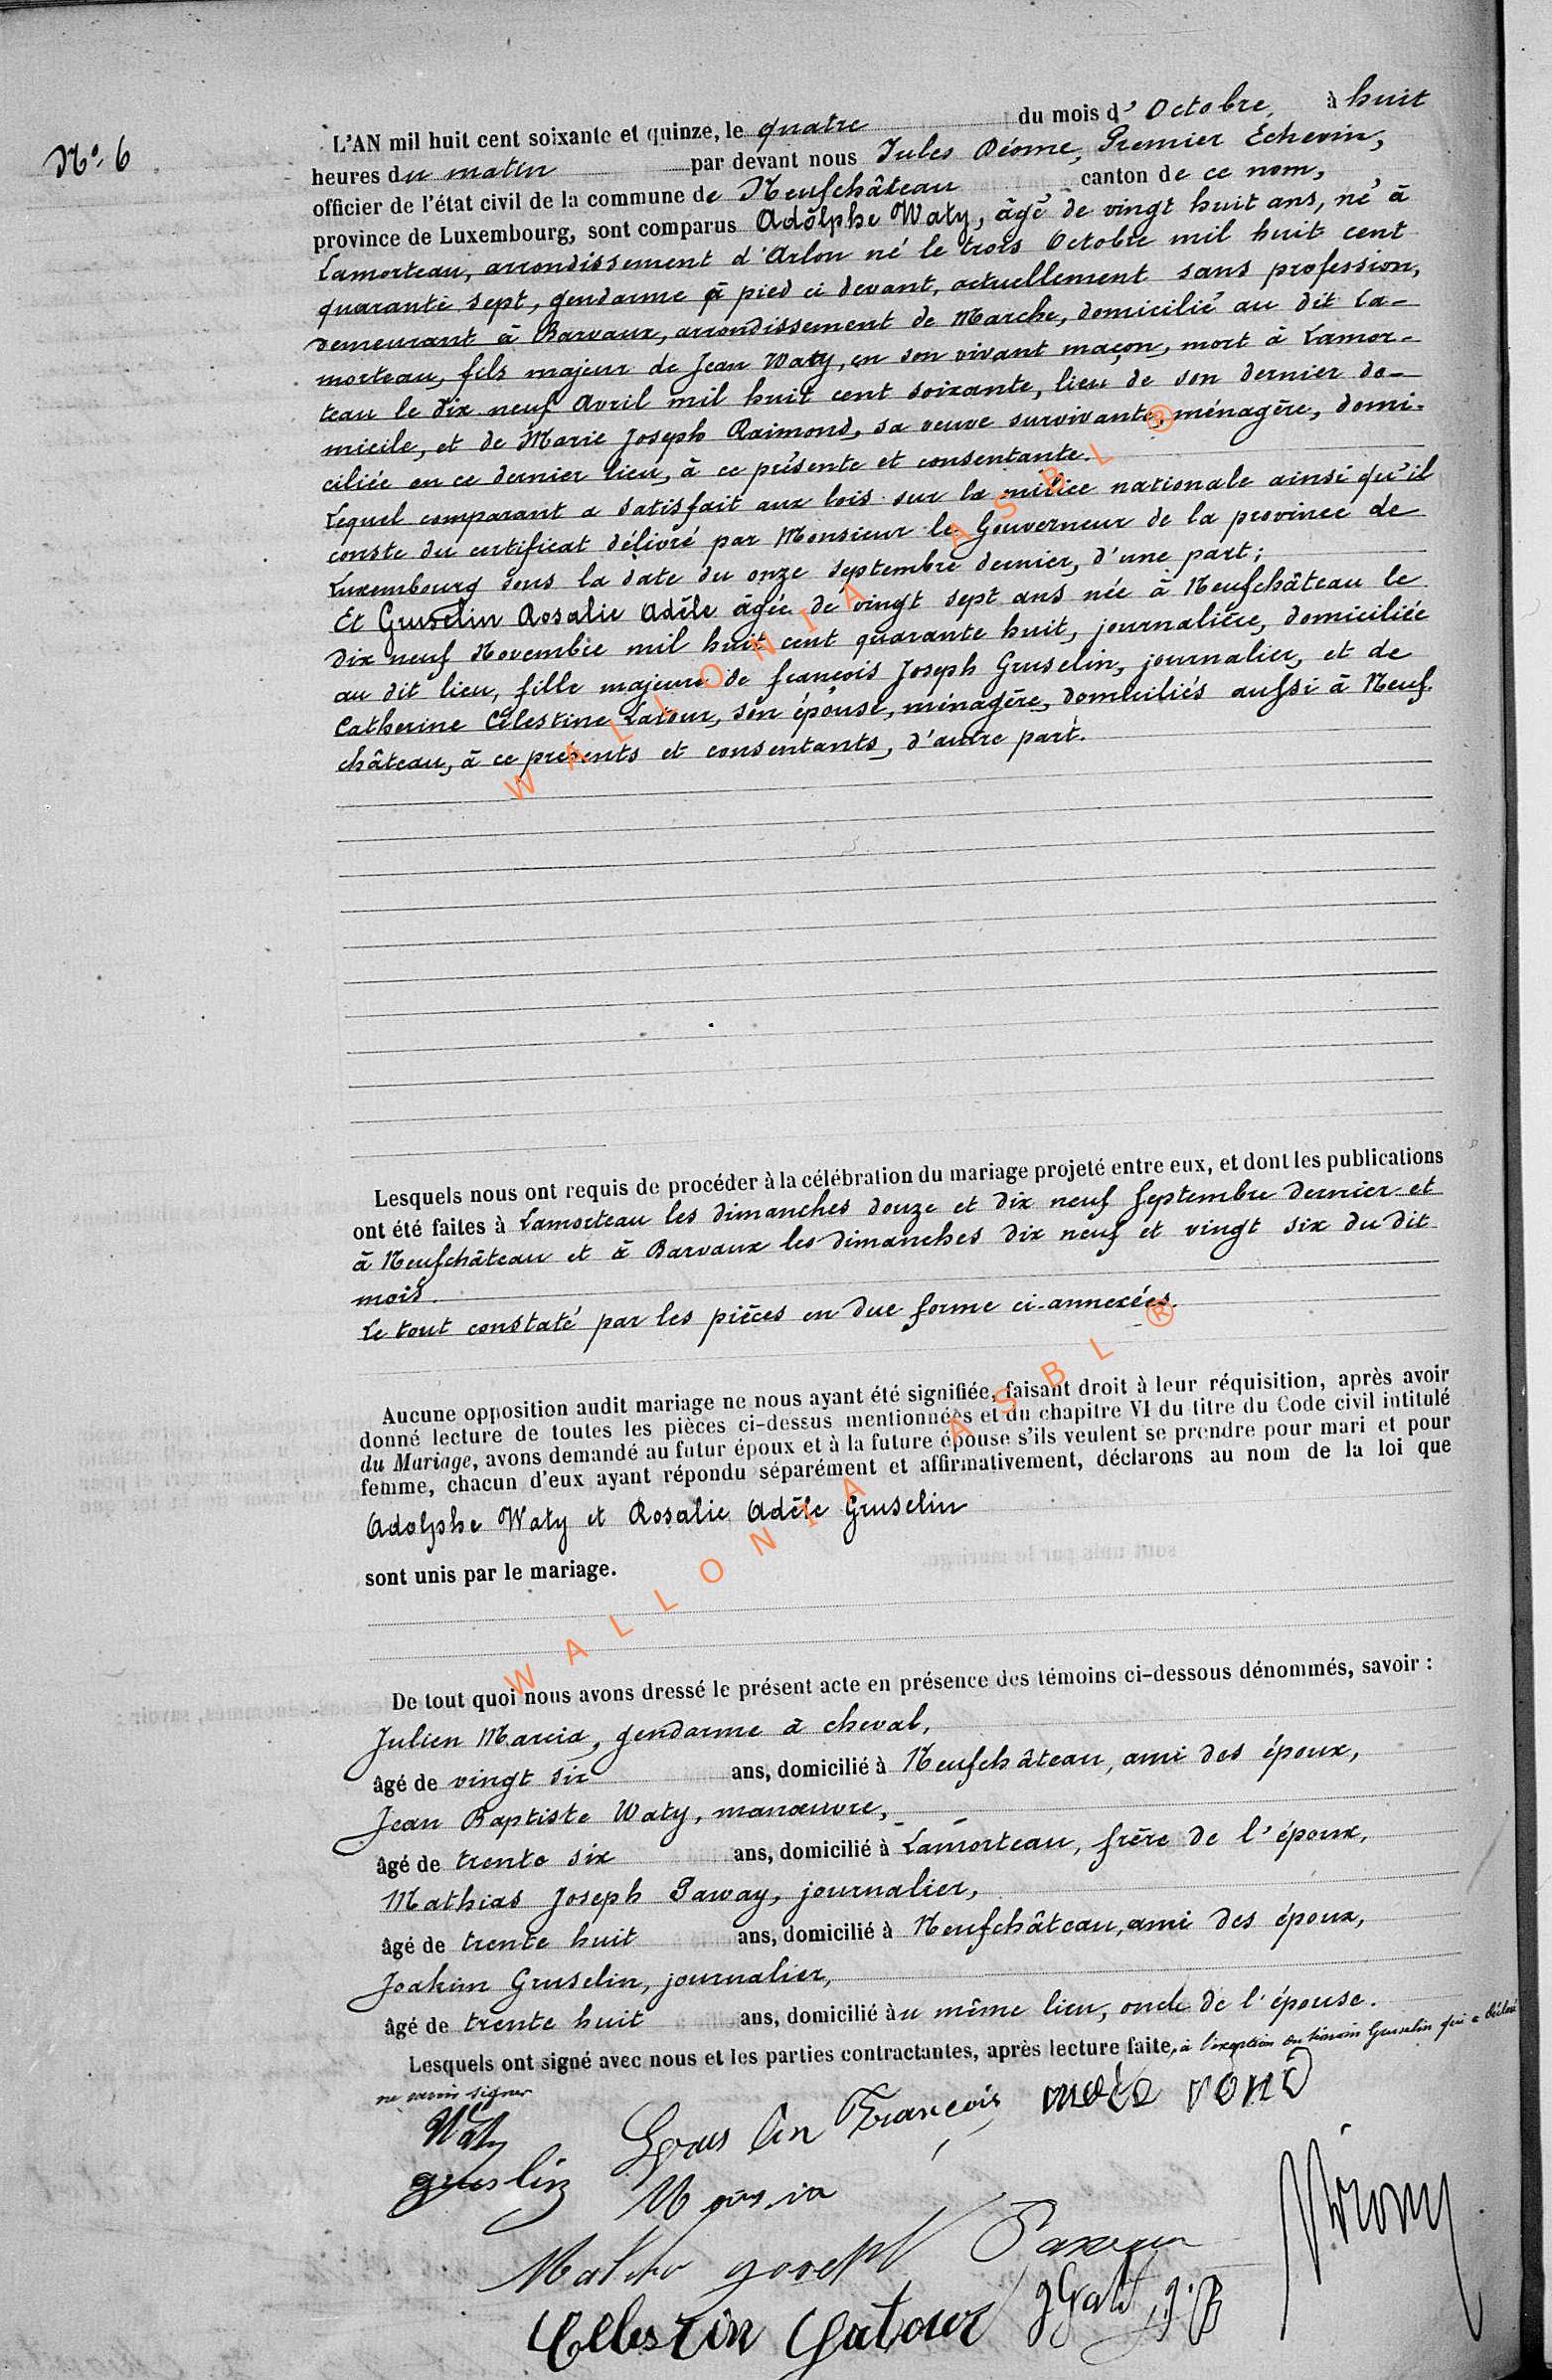 N° 6
L'AN mil huit cent soixante et quinze, le quatre du mois d'Octobre, à huit
heures du matin par devant nous Jules Déome, Premier Échevin,
officier de l'état civil de la commune de Neufchâteau canton de ce nom,
province de Luxembourg, sont comparus Adolphe Waty, âgé de vingt huit ans, né à
Lamorteau, arrondissement d'Arlon né le trois Octobre mil huit cent
quarante sept, gendarme à pied ci devant, actuellement sans profession,
demeurant à Barvaux, arrondissement de Marche, domicilié au dit La-
morteau, fils majeur de Jean Waty, en son vivant maçon, mort à Lamor-
teau le dix neuf Avril mil huit cent soixante, lieu de son dernier do-
micile, et de Marie Joseph Raimond, sa veuve survivante, ménagère, domi-
ciliée en ce dernier lieu, à ce présente et consentante.
Lequel comparant a satisfait aux lois sur la milice nationale ainsi qu'il
conste du certificat délivré par Monsieur le Gouverneur de la province de
Luxembourg sous la date du onze septembre dernier, d'une part;
Et Gruselin Rosalie Adèle âgée de vingt sept ans née à Neufchâteau le
dix neuf Novembre mil huit cent quarante huit, journalière, domiciliée
au dit lieu, fille majeure de françois Joseph Gruselin, journalier, et de
Catherine Célestine Latour, son épouse, ménagère, domiciliés aussi à Neuf-
château, à ce présents et consentants, d'autre part.
Lesquels nous ont requis de procéder à la célébration du mariage projeté entre eux, et dont les publications
ont été faites à Lamorteau les dimanches douze et dix neuf Septembre dernier et
à Neufchâteau et à Barvaux les dimanches dix neuf et vingt six du dit
mois.
Le tout constaté par les pièces en due forme ci-annexées.
Aucune opposition audit mariage ne nous ayant été signifiée, faisant droit à leur réquisition, après avoir
donné lecture de toutes les pièces ci-dessus mentionnées et du chapitre VI du titre du Code civil intitulé
du Mariage, avons demandé au futur époux et à la future épouse s'ils veulent se prendre pour mari et pour
femme, chacun d'eux ayant répondu séparément et affirmativement, déclarons au nom de la loi que
Adolphe Waty et Rosalie Adèle Gruselin
sont unis par le mariage.
De tout quoi nous avons dressé le présent acte en présence des témoins ci-dessous dénommés, savoir :
Julien Marcia, gendarme à cheval,
âgé de vingt six ans, domicilié à Neufchâteau, ami des époux,
Jean Baptiste Waty, manœuvre,
âgé de trente six ans, domicilié à Lamorteau, frère de l'époux,
Mathias Joseph Paway, journalier,
âgé de trente huit ans, domicilié à Neufchâteau, ami des époux,
Joakim Gruselin, journalier,
âgé de trente huit ans, domicilié au même lieu, oncle de l'épouse.
Lesquels ont signé avec nous et les parties contractantes, après lecture faite, à l'exception du témoin Gruselin qui a déclaré
ne savoir signer
Waty
gruslin
François
Joseph
Celestin Latour
J.B
WALLONIA ASBL ®
WALLONIA ASBL ®